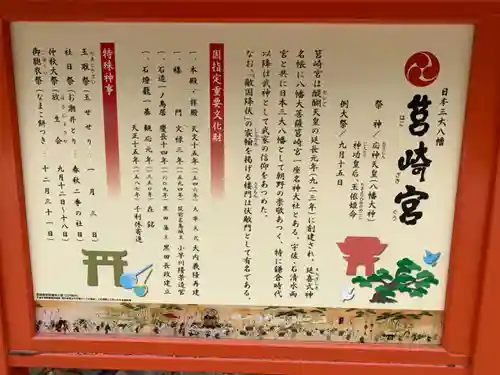 日本三大八幡
筥崎宮
はこ ざき ぐう
祭神/応神天皇(八幡大神)
神功皇后、玉依姫命
例大祭/九月十五日
筥崎宮は醍醐天皇の延長元年(九二三年)に創建され、延喜式神
名帳に八幡大菩薩筥崎宮一座名神大社とある。宇佐・石清水両
宮と共に日本三大八幡として朝野の崇敬あつく、特に鎌倉時代
以降は武神として武家の信仰をあつめた。
なお、「敵国降伏」の宸翰を掲げる楼門は伏敵門として有名である。
国指定重要文化財
一、本殿・拝殿 天文十五年(一五四六年)大宰大弐大内義隆再建
一、楼門 文禄三年(一五九四年)筑前名島城主小早川隆景造営
一、石造一ノ鳥居 慶長十四年(一六〇九年)黒田藩主黒田長政建立
一、石燈籠一基 観応元年(一三五〇年)在銘
天正十五年(一五八七年)千利休寄進
特殊神事
玉取祭(玉せせり) 一月三日
社日祭(お潮井とり) 春秋二季の社日
仲秋大祭(放生会) 九月十二日〜十八日
御胞衣祭(なまこ餅つき) 十二月三十一日